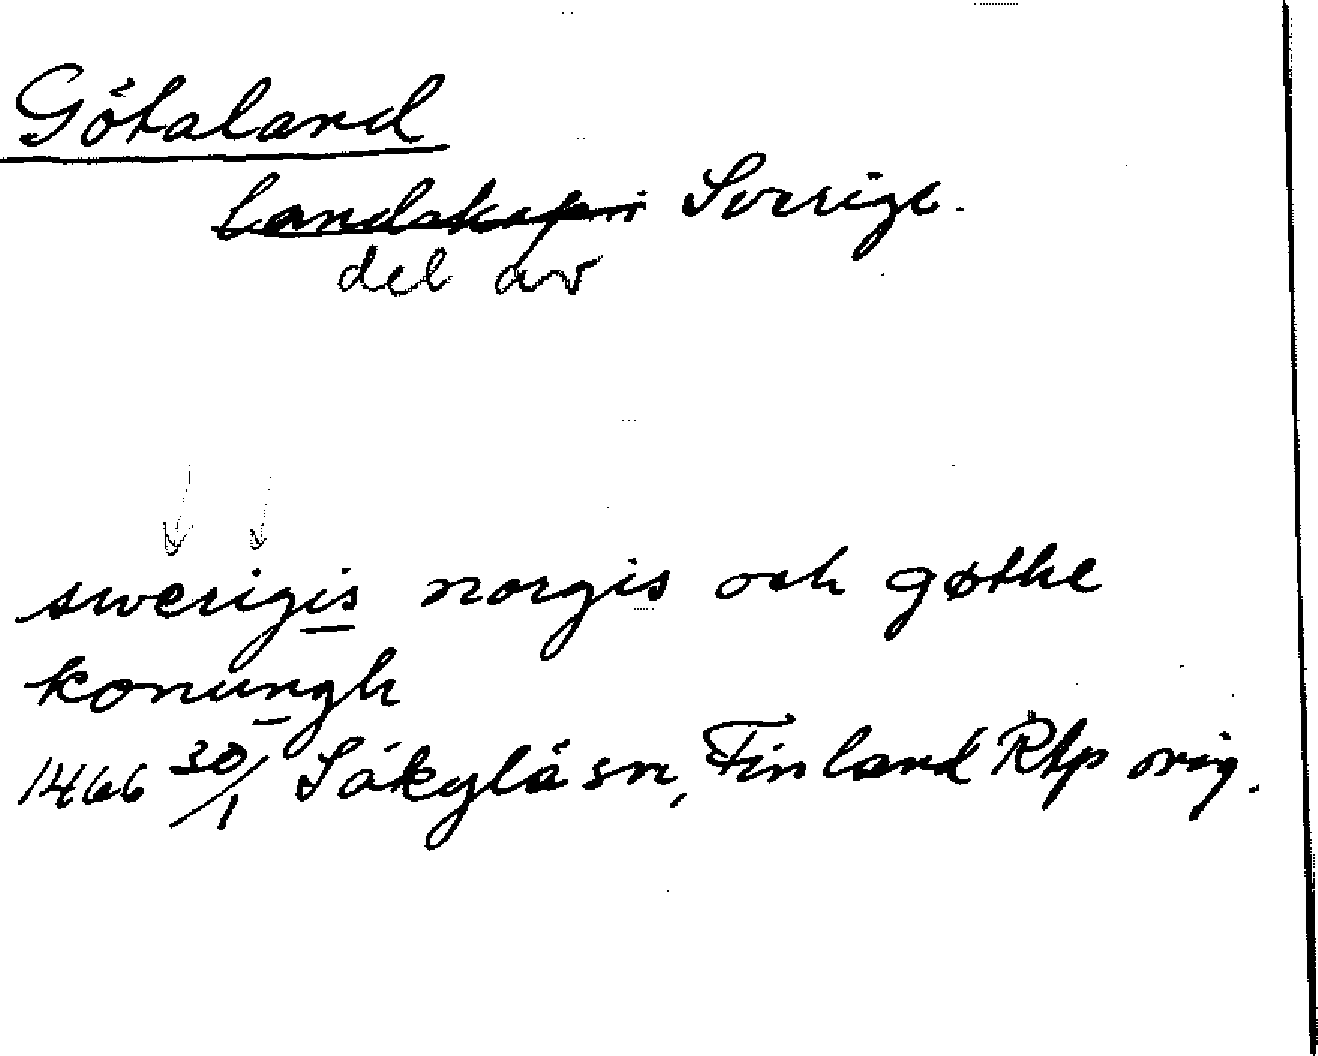 Götaland
landskap i Sverige.
del av
swerigis norgis och gøthe
konungh
1466 30/1 Säkylä sn, Finland Rap orig.